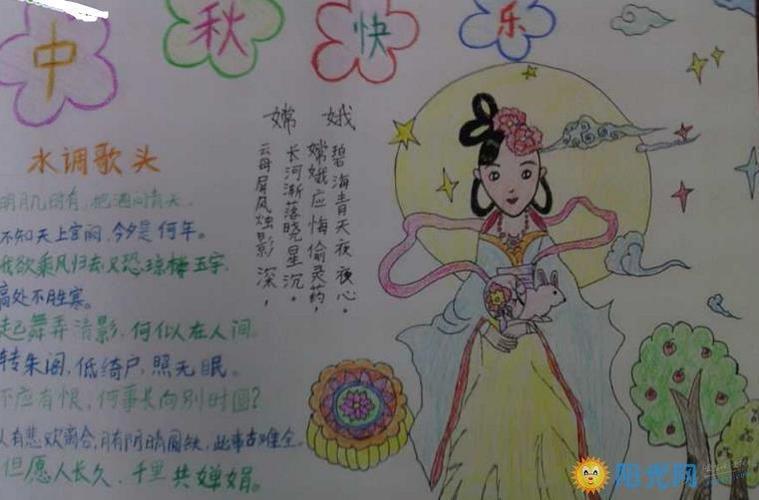 中秋快乐
水调歌头
明月几时有,把酒问青天
不知天上宫阙,今夕是何年。
我欲乘风归去,又恐琼楼玉宇,
高处不胜寒。
起舞弄清影,何似在人间。
转朱阁,低绮户,照无眠。
不应有恨,何事长向别时圆?
人有悲欢离合,月有阴晴圆缺,此事古难全。
但愿人长久,千里共婵娟。
嫦娥
云母屏风烛影深,
长河渐落晓星沉。
嫦娥应悔偷灵药,
碧海青天夜夜心。
阳光网